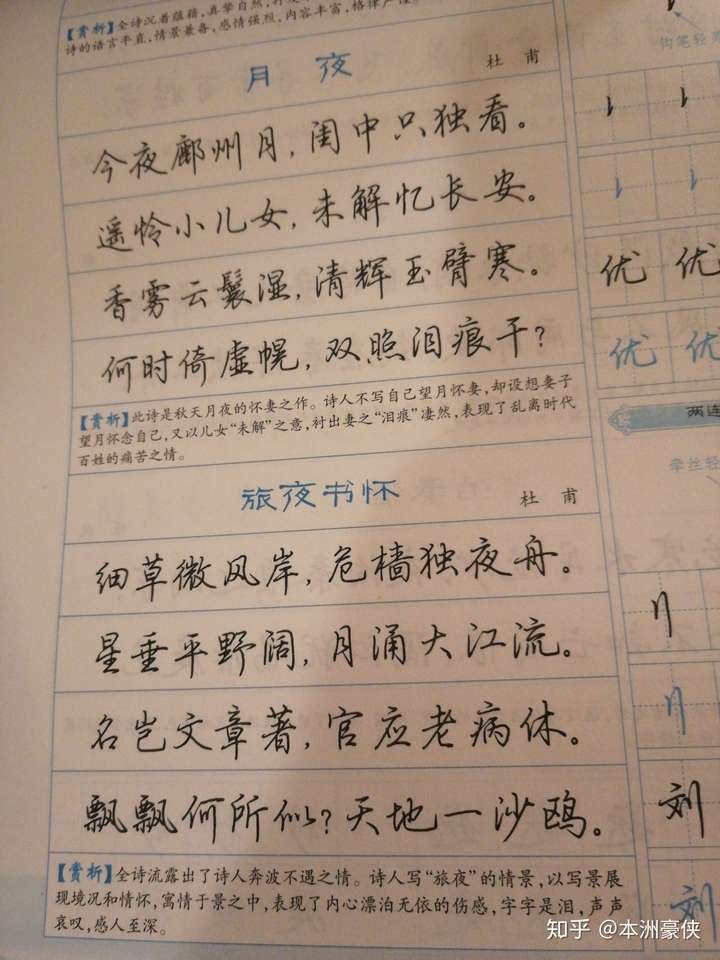 【赏析】全诗沉着蕴藉，真挚自然，
诗的语言平直，情景兼备，感情强烈，内容丰富，格律严谨。
月 夜
杜 甫
今夜鄜州月，闺中只独看。
遥怜小儿女，未解忆长安。
香雾云鬟湿，清辉玉臂寒。
何时倚虚幌，双照泪痕干？
【赏析】此诗是秋天月夜的怀妻之作。诗人不写自己望月怀妻，却设想妻子
望月怀念自己，又以儿女“未解”之意，衬出妻之“泪痕”凄然，表现了乱离时代
百姓的痛苦之情。
旅夜书怀
杜 甫
细草微风岸，危樯独夜舟。
星垂平野阔，月涌大江流。
名岂文章著，官应老病休。
飘飘何所似？天地一沙鸥。
【赏析】全诗流露出了诗人奔波不遇之情。诗人写“旅夜”的情景，以写景展
现境况和情怀，寓情于景之中，表现了内心漂泊无依的伤感，字字是泪，声声
哀叹，感人至深。
钩笔轻
优 优
优 优
两连
牵丝轻
刘
刘
知乎 @本洲豪侠